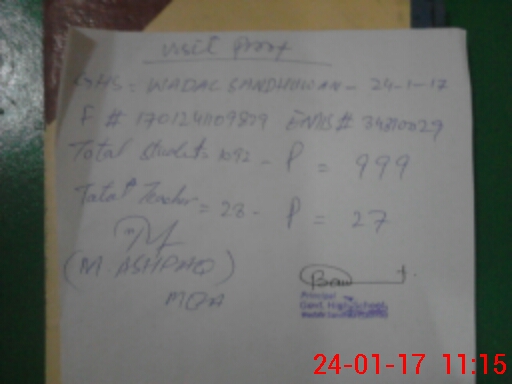 visit proof
GHS = WADALA SANDHUWAN - 24-1-17
F # EMIS #
Total Student = 1092 - P = 999
Total Teacher = 28 - P = 27
(M. ASHFAQ)
MEA
Principal
Govt. High School,
24-01-17 11:15